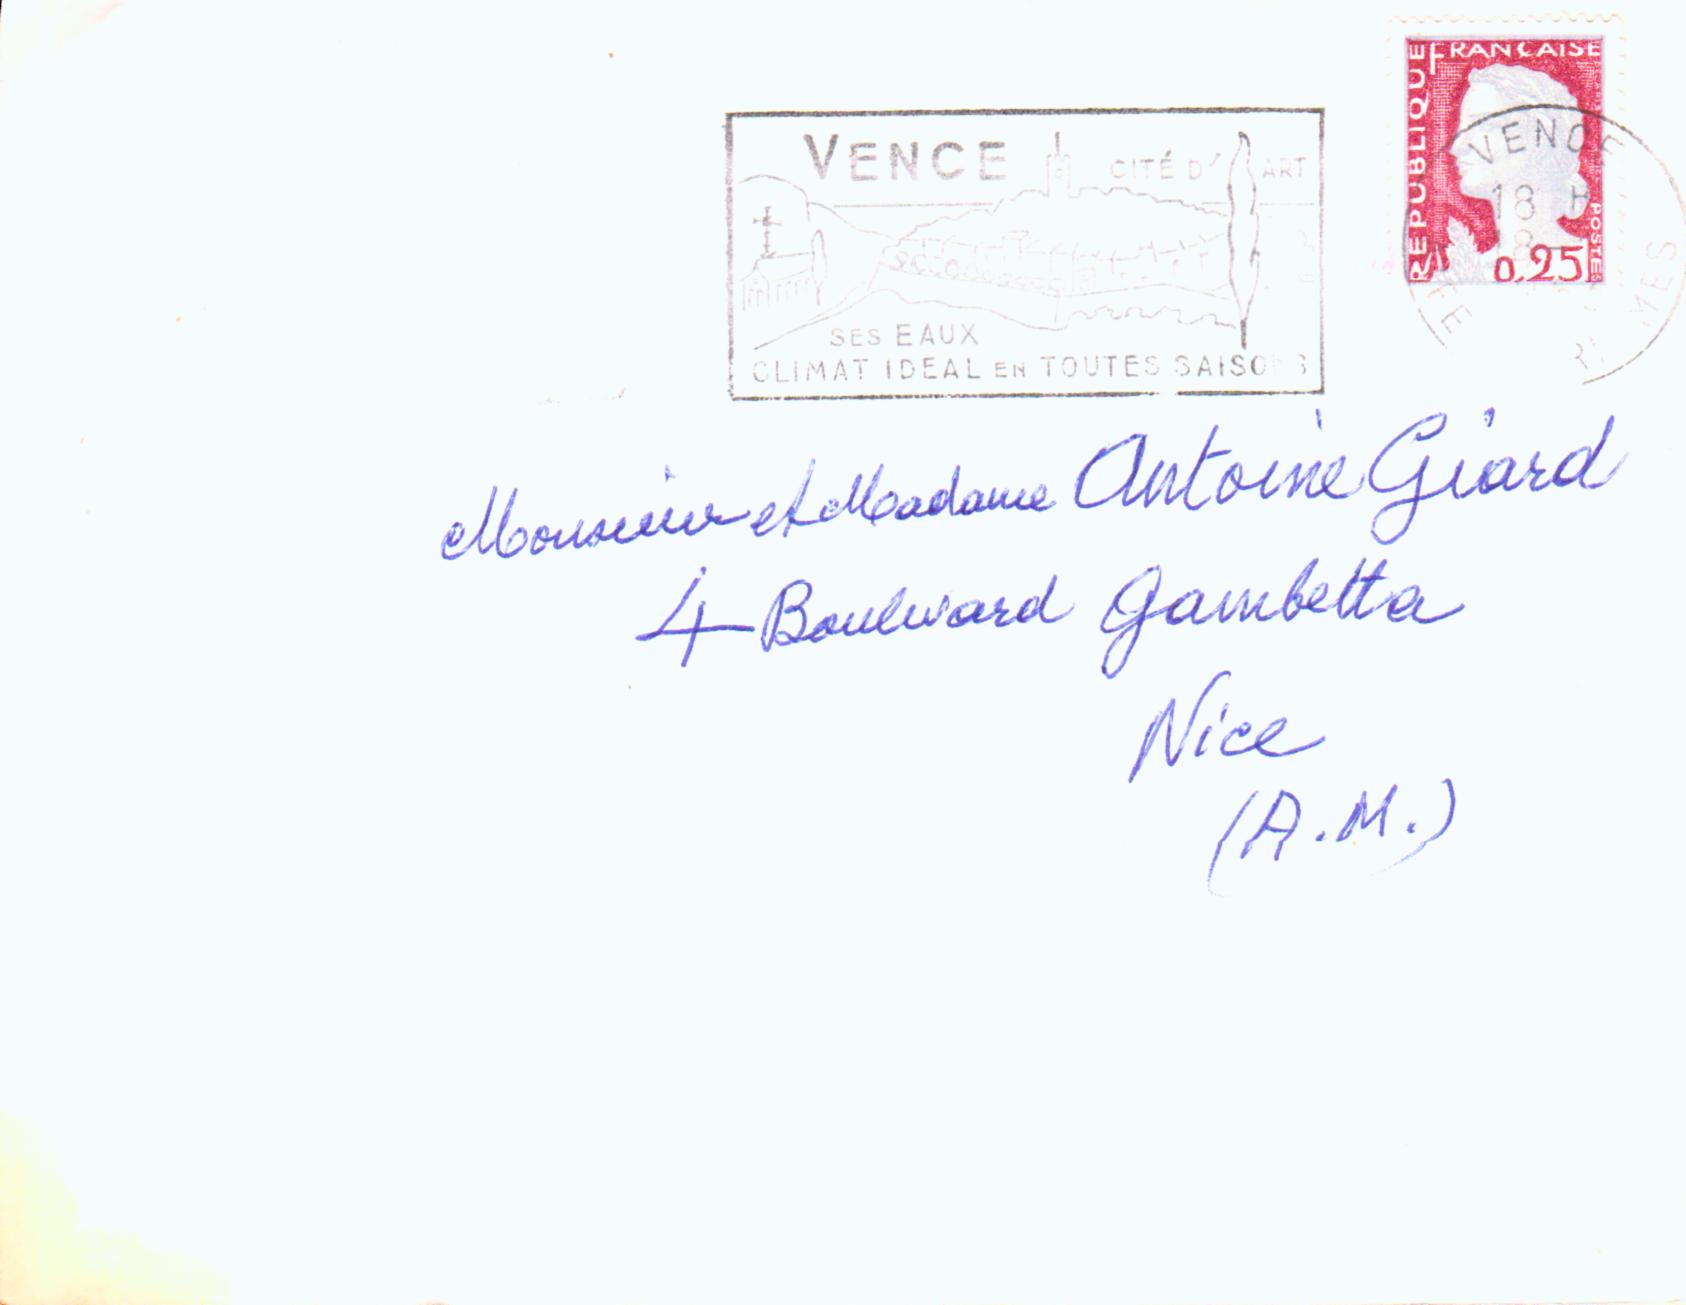 VENCE CITÉ D'ART
SES EAUX
CLIMAT IDEAL EN TOUTES SAISONS
REPUBLIQUE FRANCAISE
POSTES
0,25
VENCE
18 H
Monsieur et Madame Antoine Giard
4 Boulevard Gambetta
Nice
(A.M.)